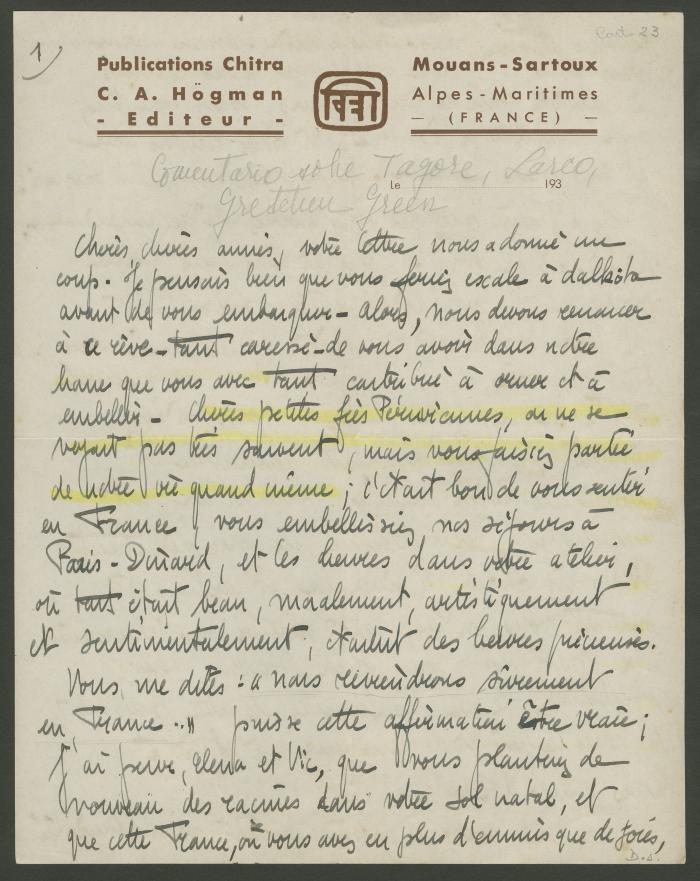 Cart. 23
1)
Publications Chitra
C. A. Högman
- Editeur -
चित्रा
Mouans-Sartoux
Alpes-Maritimes
— (FRANCE) —
Comentario sobre Tagore, Larco,
Gretchen Green
le 193
Chères, chères amies, votre lettre nous a donné un
coup. Je pensais bien que vous feriez escale à
avant de vous embarquer - Alors, nous devons renoncer
à ce rêve - tant caressé - de vous avoir dans notre
home que vous avez tant contribué à orner et à
embellir - Chères petites fées Péruviennes, on ne se
voyait pas très souvent, mais vous faisiez partie
de notre vie quand même ; c'était bon de vous sentir
en France, vous embellissiez nos séjours à
Paris - Dinard, et les heures dans votre atelier,
où tout était beau, moralement, artistiquement
et sentimentalement, étaient des heures précieuses.
Vous me dites : « nous reviendrons sûrement
en France .. » puisse cette affirmation être vraie ;
J'ai peur, Elena et Vic, que vous plantiez de
nouveau des racines dans votre sol natal, et
que cette France, où vous avez eu plus d'ennuis que de joies,